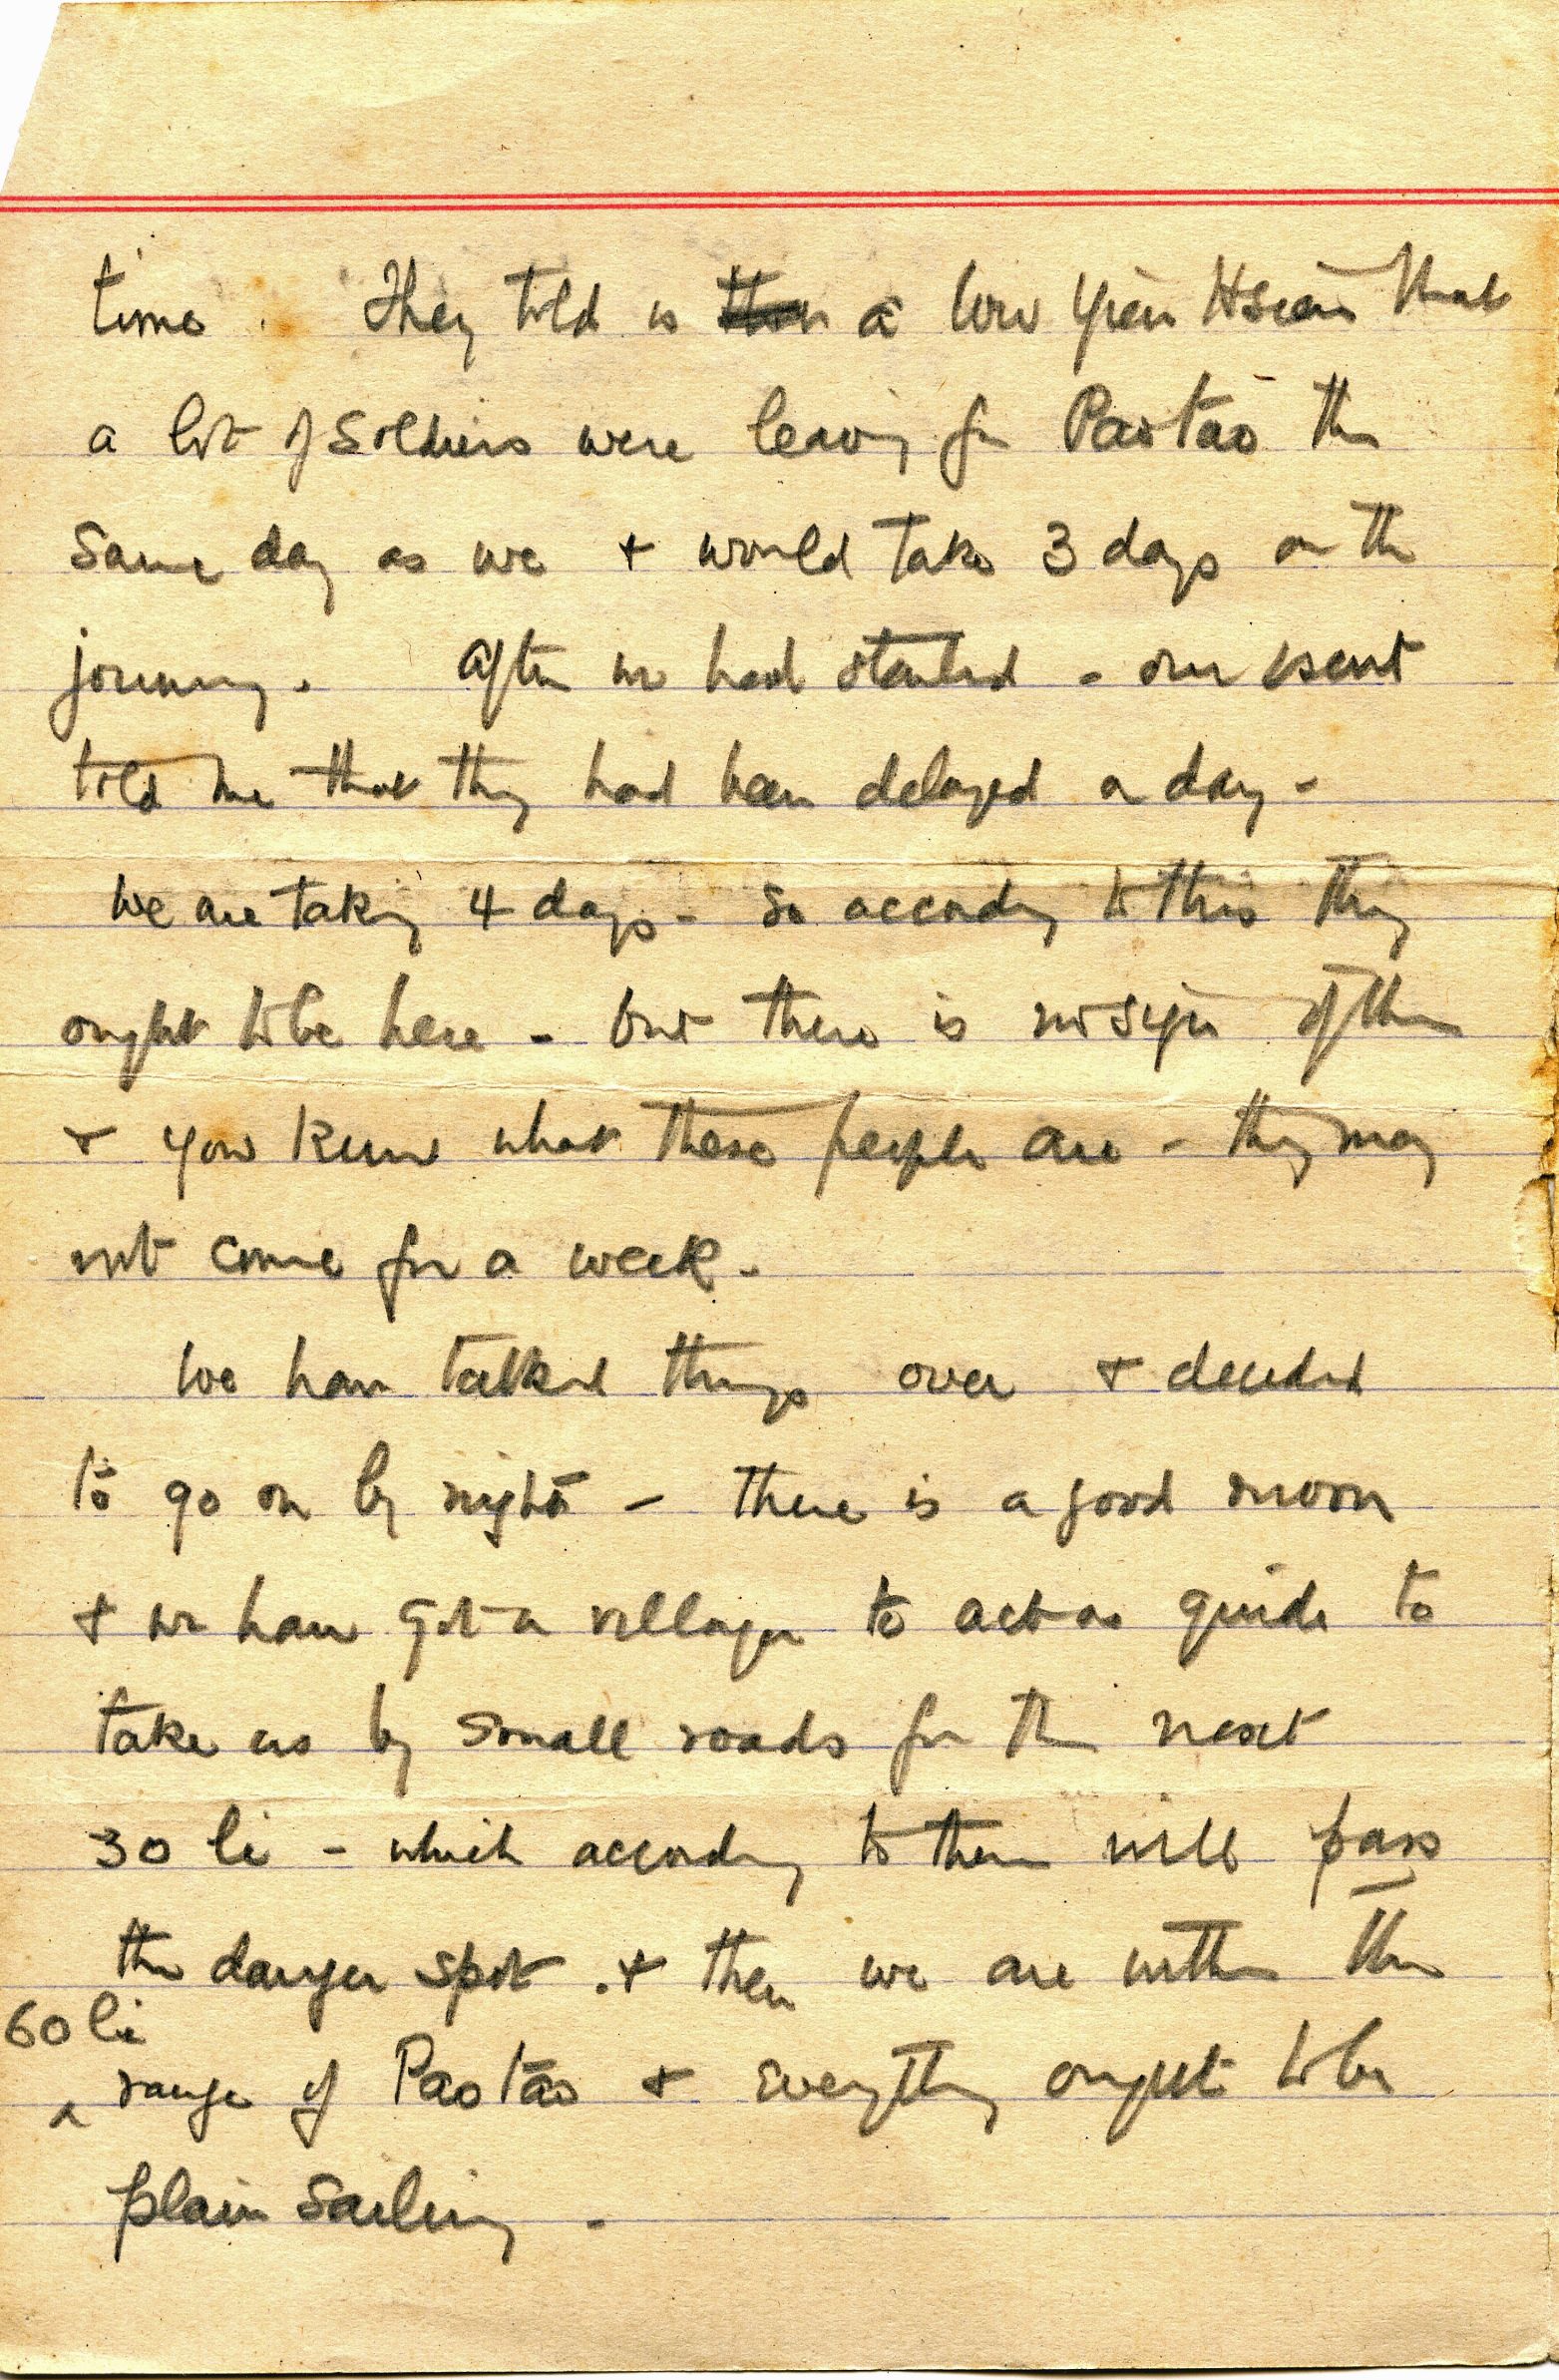 time. They told us a Wu Yuan Hsien that
a lot of soldiers were leaving for Paotao the
same day as we + would take 3 days on the
journey. After we had started - our escort
told me that they had been delayed a day -
We are taking 4 days - so according to this they
ought to be here - but there is no sign of them
+ you know what these people are - they may
not come for a week -
We have talked things over + decided
to go on by night - there is a good moon
+ we have got a villager to act as guide to
take us by small roads for the next
30 li - which according to them will pass
the danger spot . + then we are within the
60 li
^ range of Paotao + everything ought to be
plain sailing -